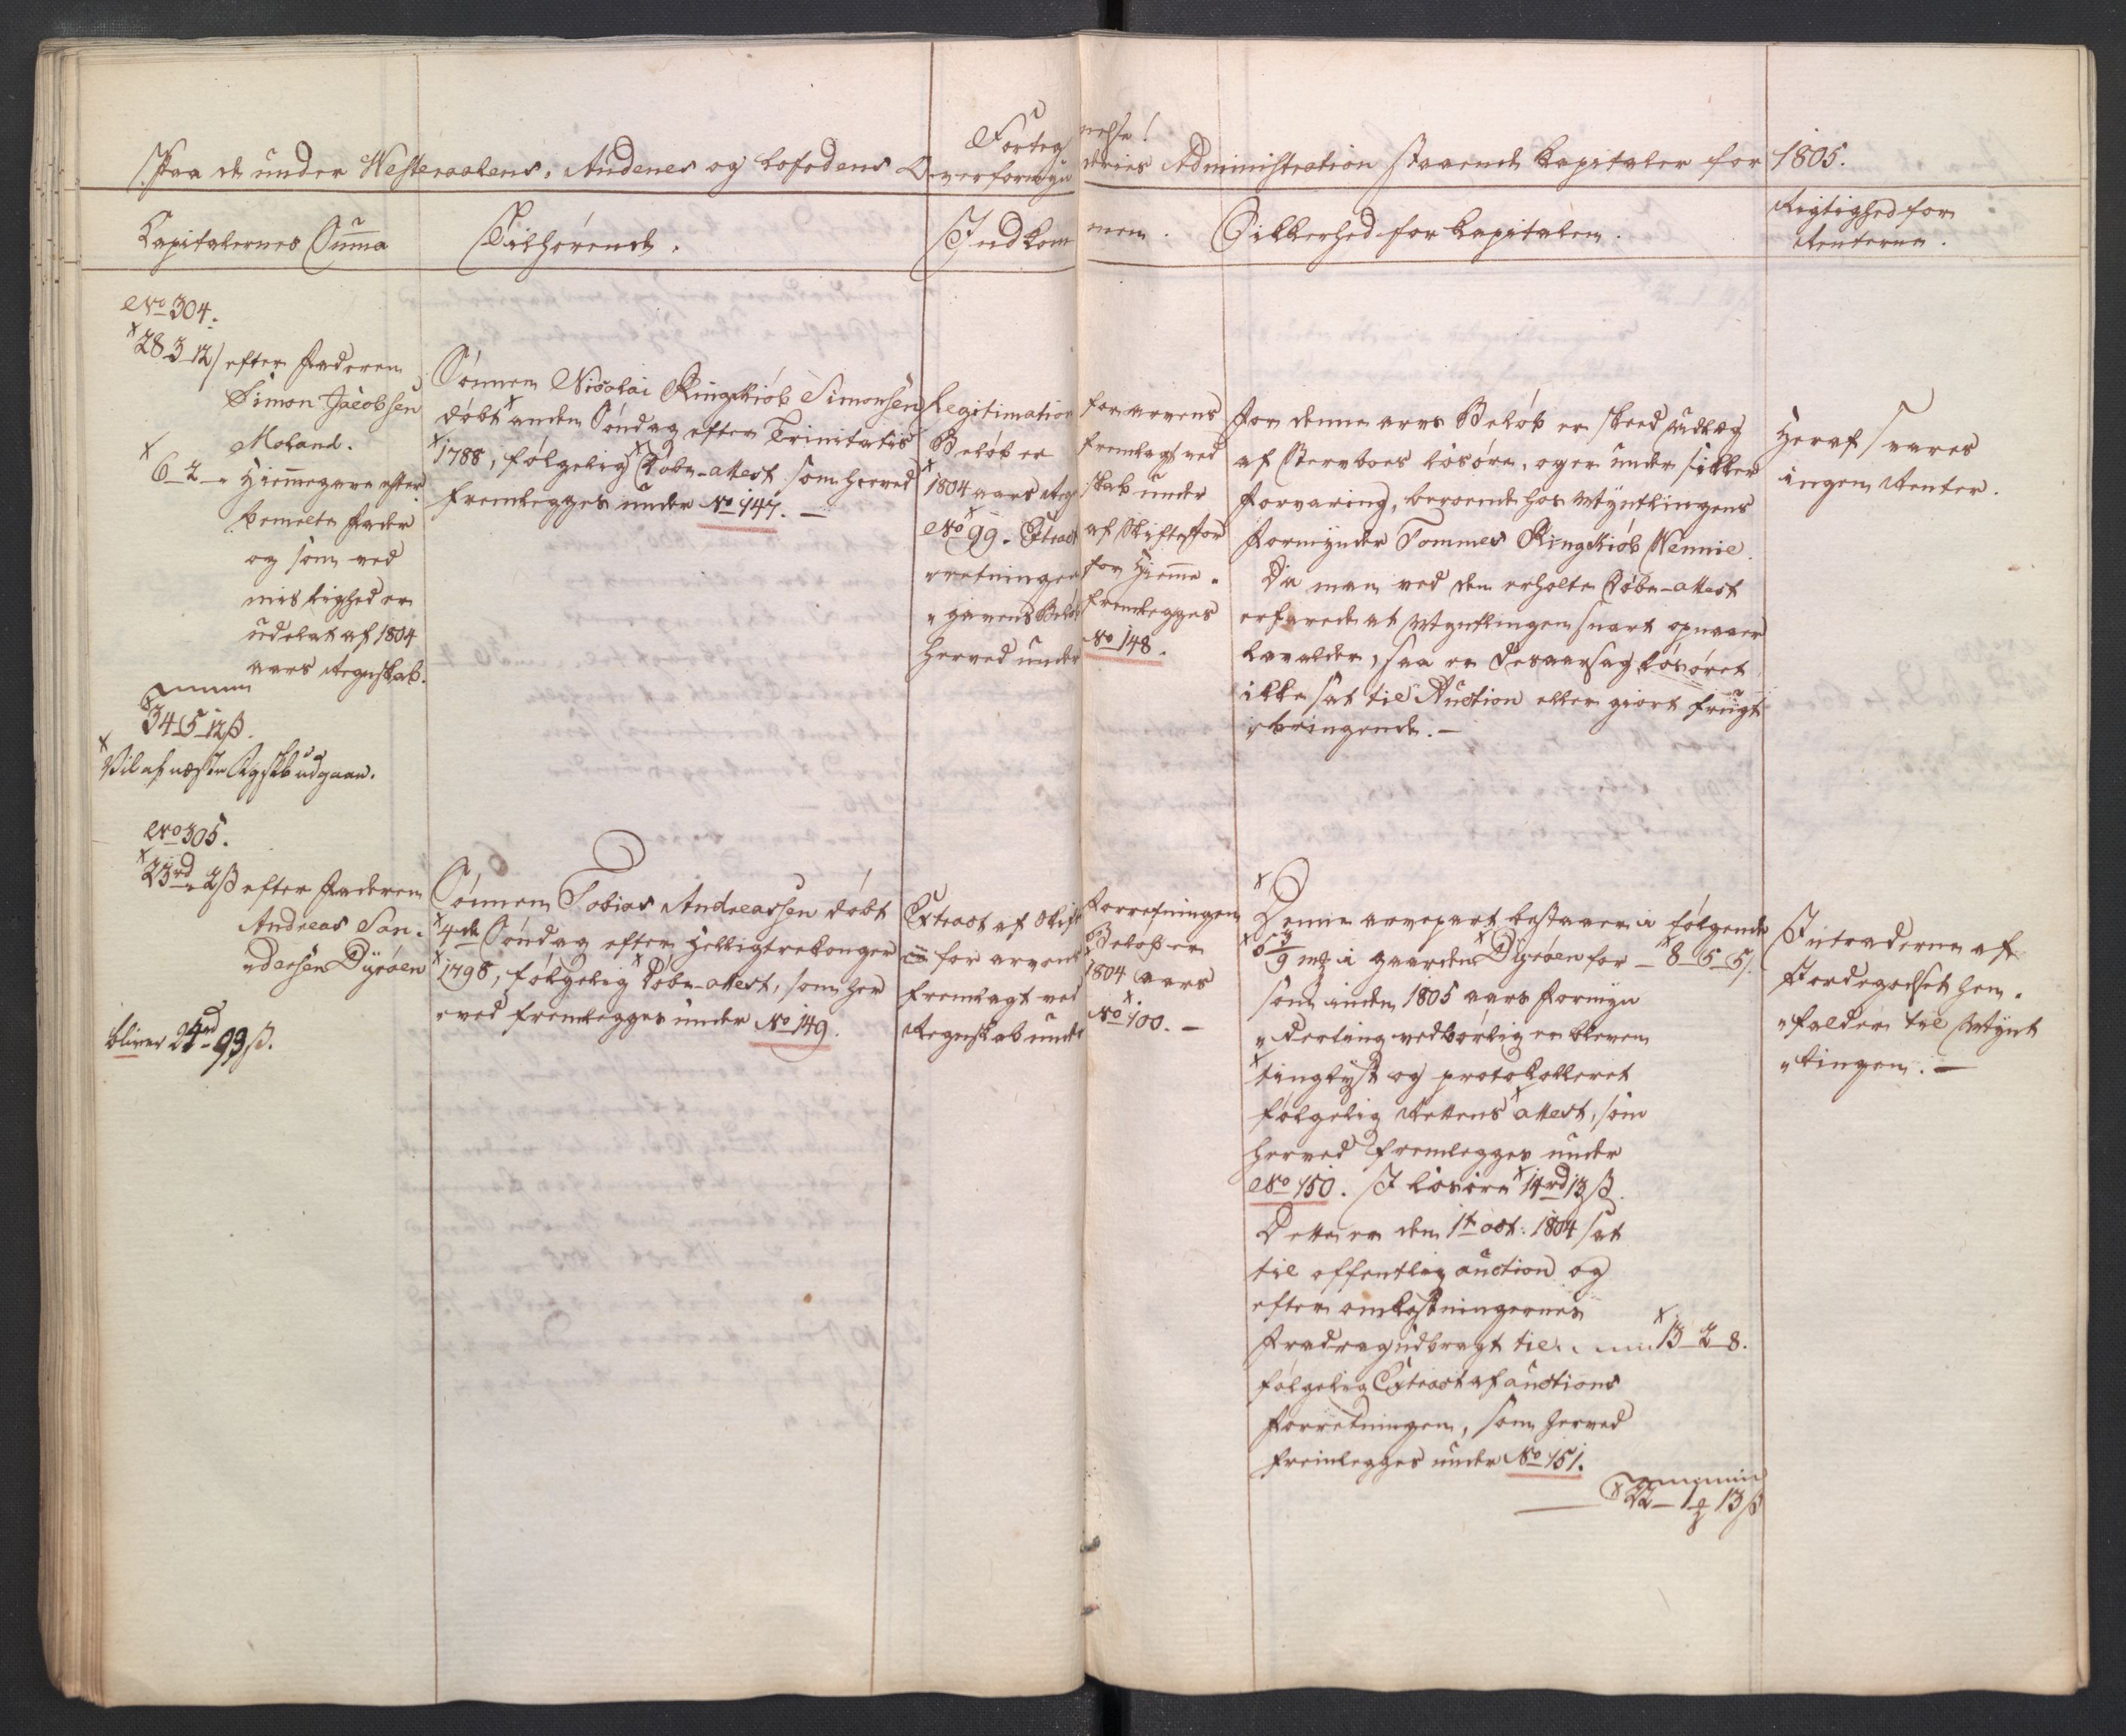 Forteg
nelse!
Paa de under Westeraalens, Andenes og Lofodens Overformyn
deries Administration staaende Kapitaler for 1805.
Kapitalernes Summa
Tilhørende.
Indkom
men.
Sikkerhed for Kapitalen.
Rigtighed for
Renterne.
No 304.
28 3 12/ efter Faderen
Simon Jacobsen
Moland.
6 2 " Hiemmegave efter
bemelte Fader
og som ved
mislighed er
udelat af 1804
aars Regnskab.
34 5 12 ß.
Vil af næste Rgskb udgaae.
Sønnen Nicolai Ringkiøb Simonsen
døbt anden Søndag efter Trinitatis
1788, følgelig Døbe-attest som herved
fremlegges under No 147. —
Legitimation
Beløb er
1804 aars Reg
No 99. Extract
rretningen
"gavens Belø
herved under
for arvens
fremlagt ved
skab under
af Skiftefor
for Hiemme"
fremlegges
No 148.
For denne arvs Beløb er skeed Udlæg
af Sterboes Løsøre, og er under sikker
forvaring, beroende hos Myntlingens
Formynder Tommes Ringkiøb Wennie.
Da man ved den erholte Døbe-attest
erfarede at Myntlingen snart opnaaer
lavalder, saa er desaarsag Løsøret
ikke sat til Auction eller giort frugt
"bringende. —
Heraf svares
ingen Renter.
No 305.
23 rd " 2 ß efter Faderen
Andreas San"
"dersen Dyrøen
bliver 24 rd 93 ß.
Sønnen Tobias Andreassen døbt
4de Søndag efter Helligtrekonger
1798, følgelig Døbe-attest, som her
"ved fremlegges under No 149.
Extract af Skifte
for arvens
fremlagt ved
Regnskab under
Forretningen
Beløb er
1804 aars
No 100. —
Denne arvepart bestaaer i følgende
5 3/9 mk i gaarden Dyrøen for — 8 5 5/.
som inden 1805 aars Formyn
"derting vedbørlig er bleven
tinglyst og protokolleret
følgelig Rettens attest, som
herved fremlegges under
No 150. I Løsøre 14 rd 13 ß.
Dette er den 1te oct: 1804 sat
til offentlig auction og
efter omkostningernes
fradrag udbragt til 13 2 8.
følgelig Extract af auctions
Forretningen, som herved
fremlegges under No 151.
22 — 1 13 ß
Intraderne af
Jordegodset hen"
"falder til Mynt
"lingen. —